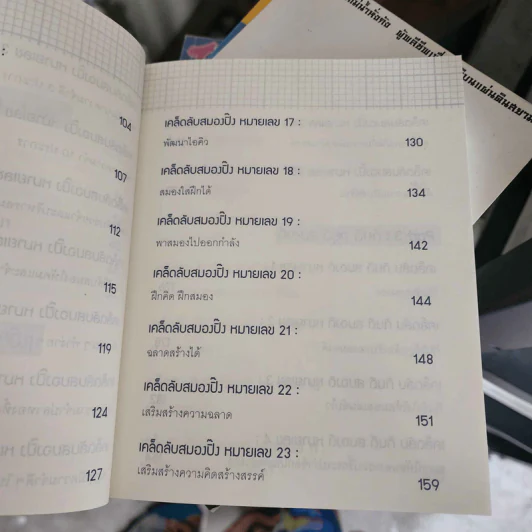 104
107
112
115
119
124
127
เคล็ดลับสมองปิ๊ง หมายเลข 17 :
พัฒนาไอคิว 130
เคล็ดลับสมองปิ๊ง หมายเลข 18 :
สมองใสฝึกได้ 134
เคล็ดลับสมองปิ๊ง หมายเลข 19 :
พาสมองไปออกกำลัง 142
เคล็ดลับสมองปิ๊ง หมายเลข 20 :
ฝึกคิด ฝึกสมอง 144
เคล็ดลับสมองปิ๊ง หมายเลข 21 :
ฉลาดสร้างได้ 148
เคล็ดลับสมองปิ๊ง หมายเลข 22 :
เสริมสร้างความฉลาด 151
เคล็ดลับสมองปิ๊ง หมายเลข 23 :
เสริมสร้างความคิดสร้างสรรค์ 159